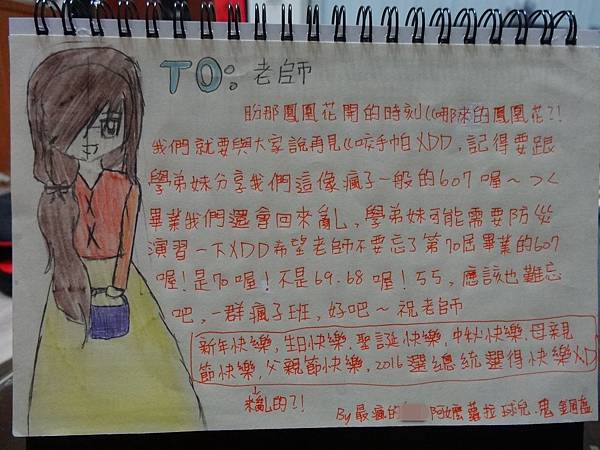 TO:老師
盼那鳳凰花開的時刻((哪來的鳳凰花?!
我們就要與大家說再見((咬手帕XDD,記得要跟
學弟妹分享我們這像瘋子一般的607喔~ㄟ(
畢業我們還會回來亂,學弟妹可能需要防災
演習一下XDD希望老師不要忘了第70屆畢業的607
喔!是70喔!不是69.68喔!ㄎㄎ,應該也難忘
吧,一群瘋子班,好吧~祝老師
新年快樂,生日快樂,聖誕快樂,中秋快樂.母親
節快樂,父親節快樂,2016選總統選得快樂XD
來亂的?!
By最瘋的 阿嬤蘿拉球兒.鬼